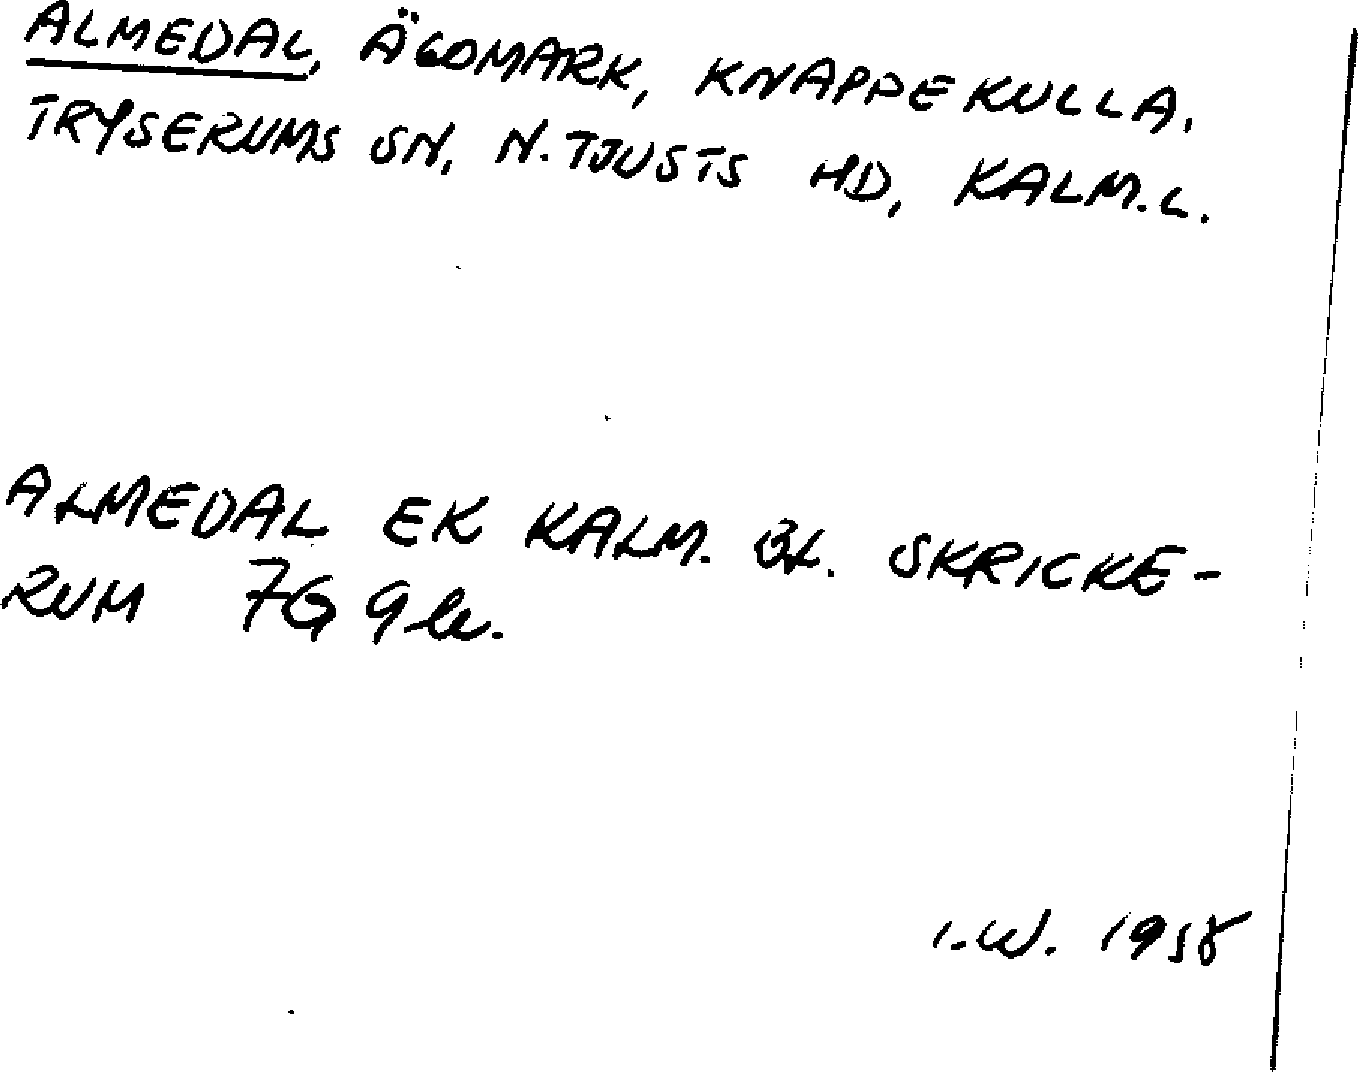 ALMEDAL, ÄGOMARK, KNAPPEKULLA.
TRYSERUMS SN, N. TJUSTS HD, KALM.L.
ALMEDAL EK KALM. BL. SKRICKE-
RUM 7G 9
I.W. 1958